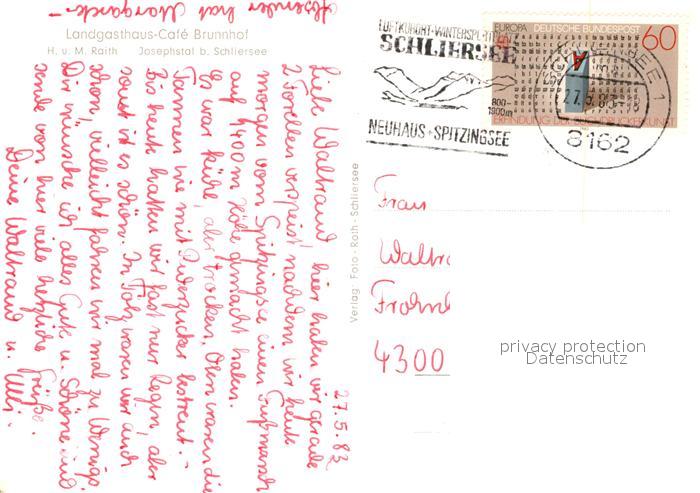 Absender hat Margarete
Landgasthaus-Café Brunnhof
H. u. M. Raith Josephstal b. Schliersee
27.5.83
Liebe Waltraud, hier haben wir gerade
2 Forellen verspeist nachdem wir heute
morgen vom Spitzingsee einen Fußmarsch
auf 1400 m Höhe gemacht haben.
Es war kühl, aber trocken, oben waren die
Tannen wie mit Puderzucker bestreut. -
Bis heute hatten wir fast nur Regen, aber
sonst ist es schön. In Tölz waren wir auch
schon, vielleicht fahren wir mal zu
Dir wünsche ich alles Gute u. Schöne und
sende von hier viele herzliche Grüße.
Deine Waltraud u. Willi.
Verlag Foto-Rath-Schliersee
LUFTKURORT-WINTERSPORTPLATZ
SCHLIERSEE
800-
1800m
NEUHAUS-SPITZINGSEE
SCHLIERSEE 1
27.5.83-18
8162
EUROPA DEUTSCHE BUNDESPOST 60
ERFINDUNG DER BUCHDRUCKERKUNST
Frau
Waltr
Frohn
4300
privacy protection
Datenschutz